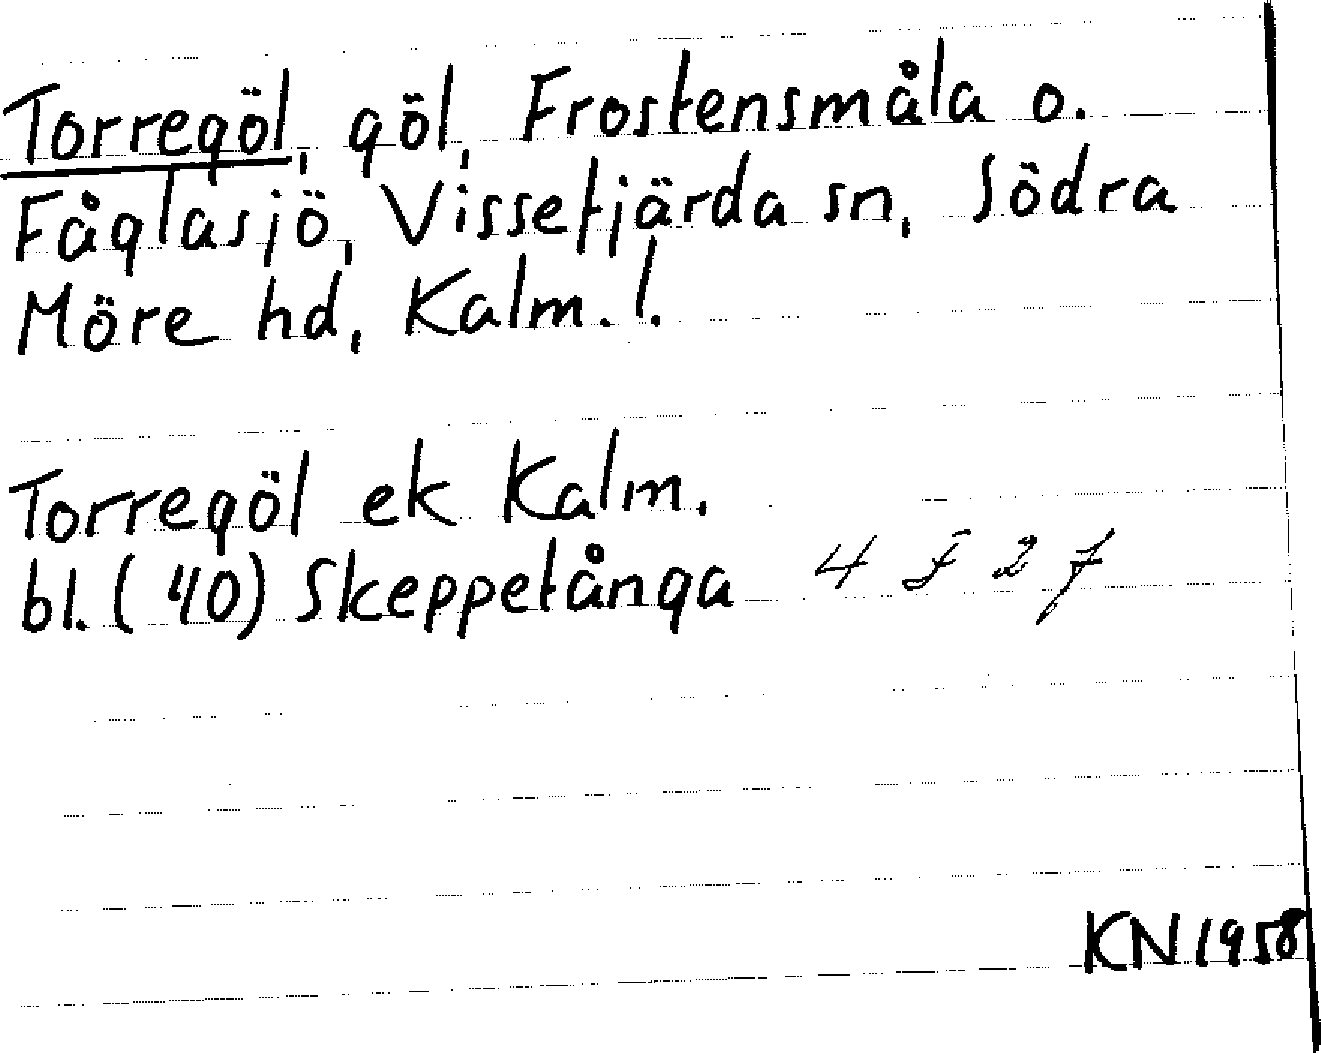 Torregöl, göl, Frostensmåla o.
Fåglasjö, Vissefjärda sn, Södra
Möre hd, Kalm. l.
Torregöl ek Kalm.
bl. (40) Skeppetånga 4 F 2 f
KN 1958